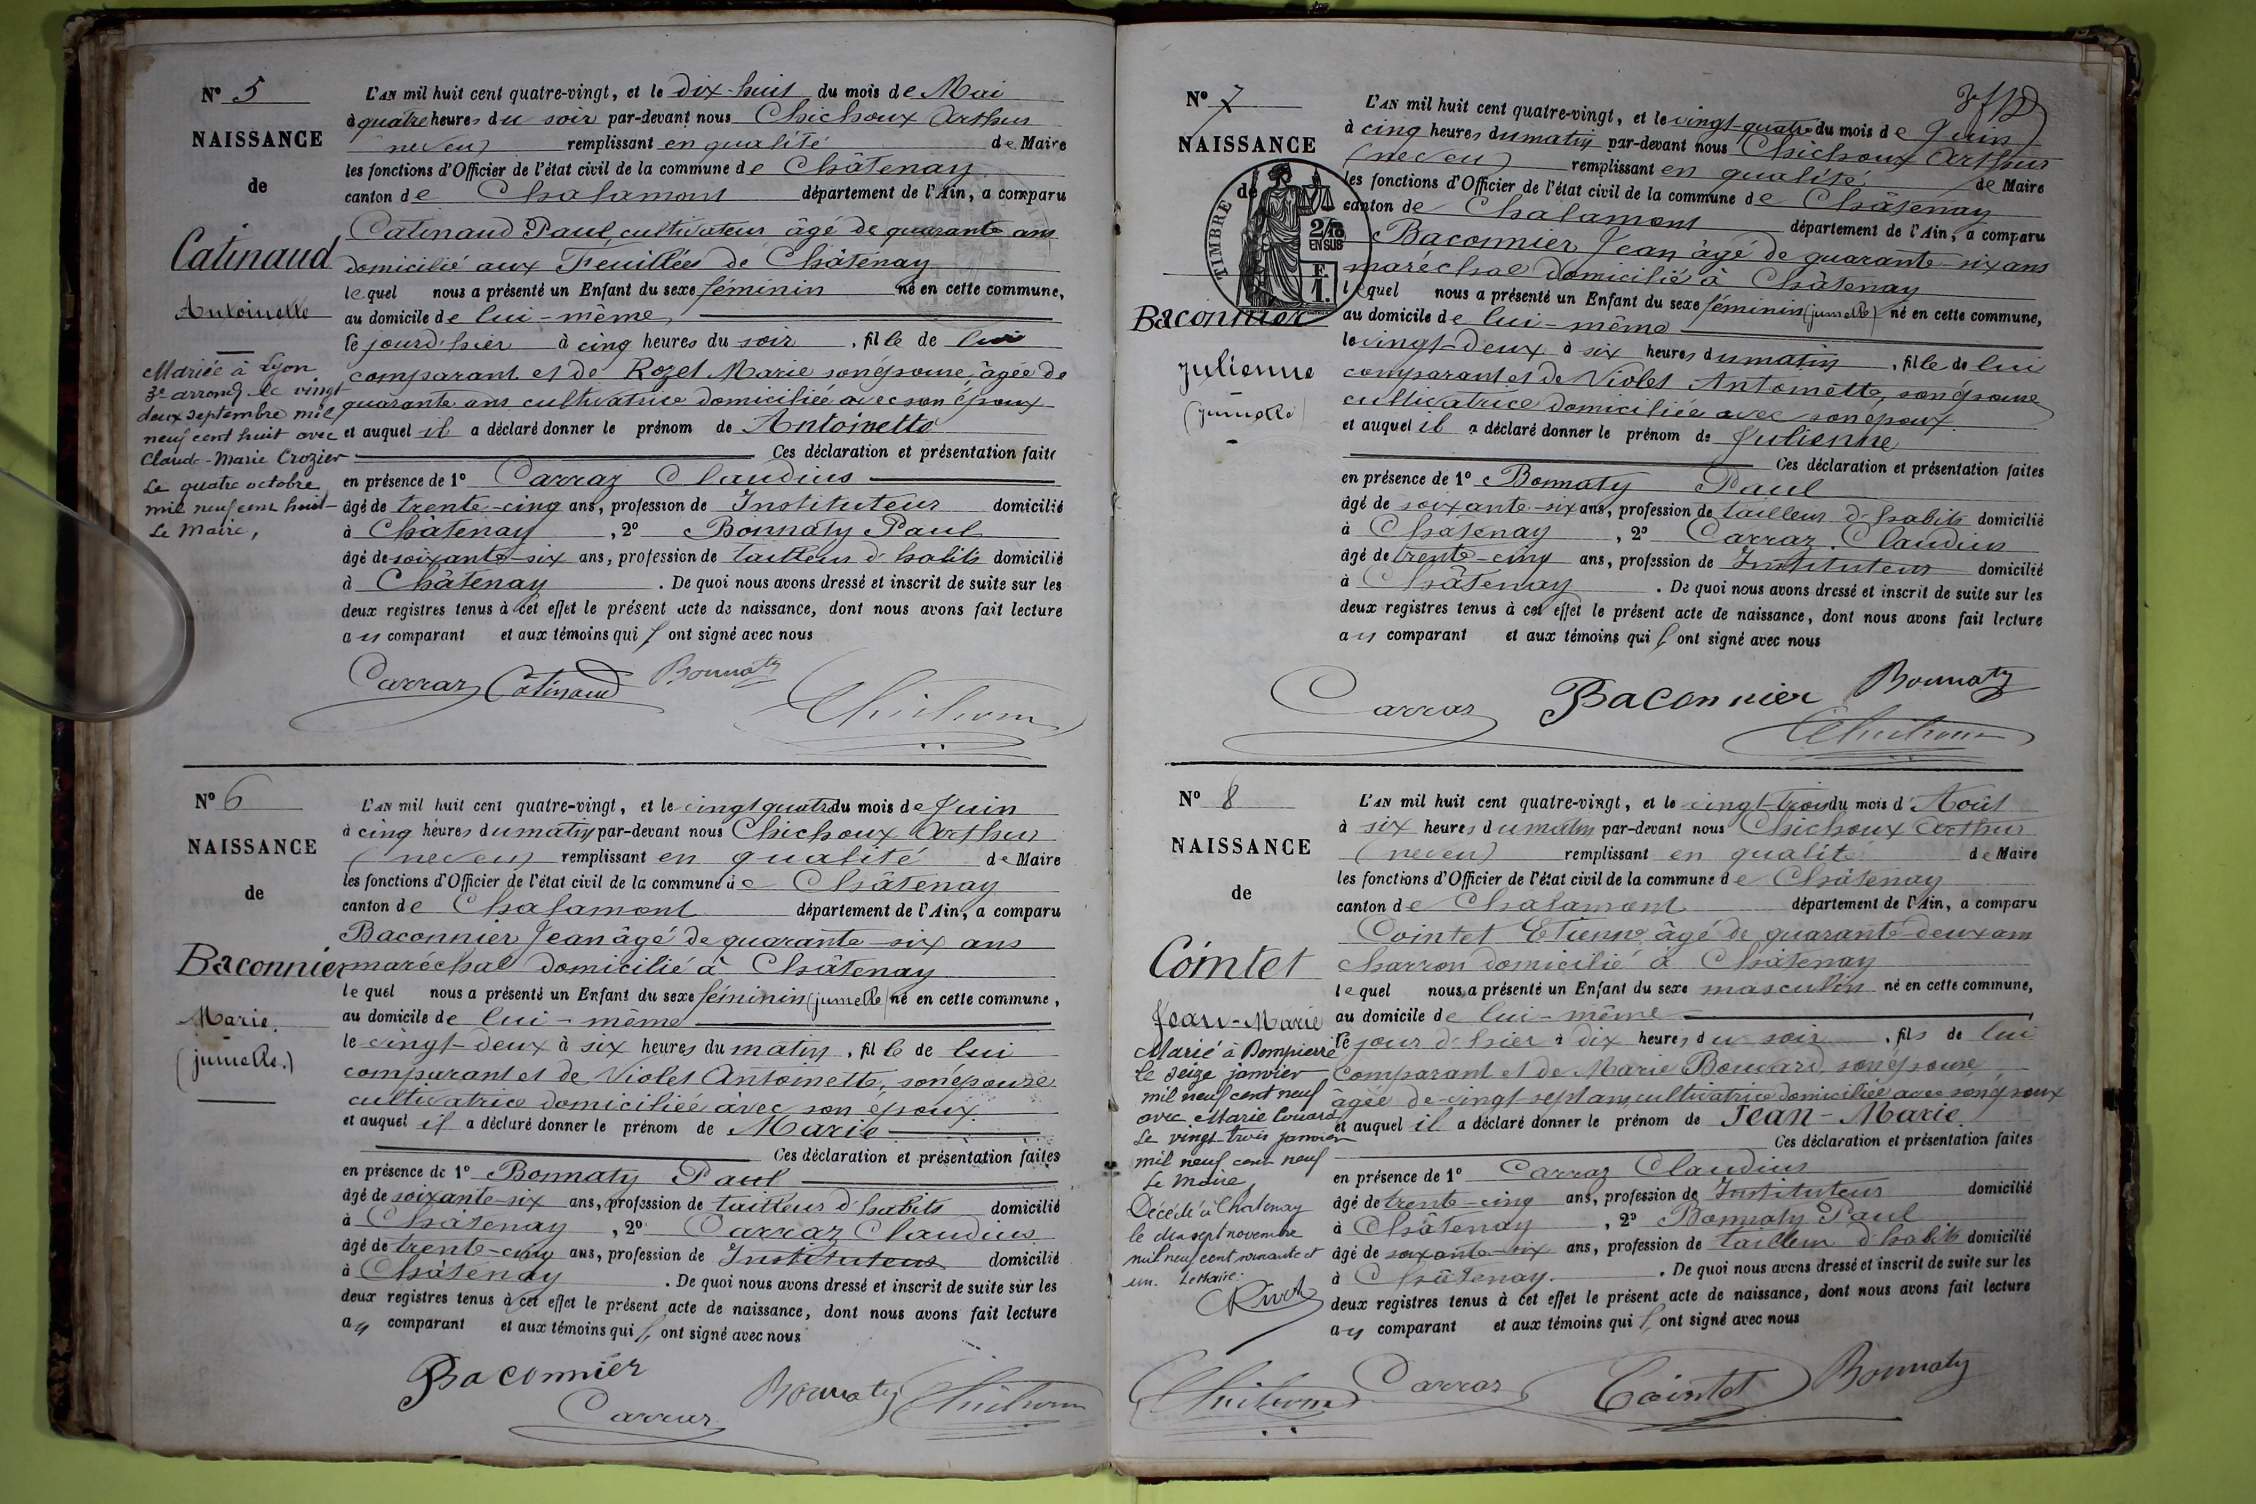 N° 5
NAISSANCE
de
Catinaud
Antoinette
Mariée à Lyon
3e arrond le vingt
deux septembre mil
neuf cent huit avec
Claude-Marie Crozier
Le quatre octobre
mil neuf cent huit
Le Maire,
L'AN mil huit cent quatre-vingt, et le dix-huit du mois de Mai
à quatre heures du soir par-devant nous Chichoux Arthur
(neveu) remplissant en qualité de Maire
les fonctions d'Officier de l'état civil de la commune de Châtenay
canton de Chalamont département de l'Ain, a comparu
Catinaud Paul, cultivateur âgé de quarante ans
domicilié aux Feuillées de Châtenay
lequel nous a présenté un Enfant du sexe féminin né en cette commune,
au domicile de lui-même,
le jour d'hier à cinq heures du soir, fille de lui
comparant et de Rozet Marie son épouse, âgée de
quarante ans cultivatrice domiciliée avec son époux
et auquel il a déclaré donner le prénom de Antoinette
Ces déclaration et présentation faites
en présence de 1° Carraz Claudius
âgé de trente-cinq ans, profession de Instituteur domicilié
à Châtenay, 2° Bonnaty Paul
âgé de soixante-six ans, profession de tailleur d'habits domicilié
à Châtenay. De quoi nous avons dressé et inscrit de suite sur les
deux registres tenus à cet effet le présent acte de naissance, dont nous avons fait lecture
au comparant et aux témoins qui ont signé avec nous
Carraz Catinaud Bonnaty
Chichoux
N° 6
NAISSANCE
de
Baconnier
Marie.
(jumelle.)
L'AN mil huit cent quatre-vingt, et le vingt quatre du mois de Juin
à cinq heures du matin par-devant nous Chichoux Arthur
(neveu) remplissant en qualité de Maire
les fonctions d'Officier de l'état civil de la commune de Châtenay
canton de Chalamont département de l'Ain, a comparu
Baconnier Jean âgé de quarante-six ans
maréchal domicilié à Châtenay
lequel nous a présenté un Enfant du sexe féminin (jumelle) né en cette commune,
au domicile de lui-même
le vingt-deux à six heures du matin, fille de lui
comparant et de Violet Antoinette, son épouse
cultivatrice domiciliée avec son époux.
et auquel il a déclaré donner le prénom de Marie
Ces déclaration et présentation faites
en présence de 1° Bonnaty Paul
âgé de soixante-six ans, profession de tailleur d'habits domicilié
à Châtenay, 2° Carraz Claudius
âgé de trente-cinq ans, profession de Instituteur domicilié
à Châtenay. De quoi nous avons dressé et inscrit de suite sur les
deux registres tenus à cet effet le présent acte de naissance, dont nous avons fait lecture
au comparant et aux témoins qui ont signé avec nous
Baconnier
Carraz Bonnaty Chichoux
N° 7
NAISSANCE
de
TIMBRE
2/10
EN SUS
F.
1.
Baconnier
Julienne
(jumelle)
L'AN mil huit cent quatre-vingt, et le vingt-quatre du mois de Juin
à cinq heures du matin par-devant nous Chichoux Arthur
(neveu) remplissant en qualité de Maire
les fonctions d'Officier de l'état civil de la commune de Châtenay
canton de Chalamont département de l'Ain, a comparu
Baconnier Jean âgé de quarante-six ans
maréchal domicilié à Châtenay
lequel nous a présenté un Enfant du sexe féminin (jumelle) né en cette commune,
au domicile de lui-même
le vingt-deux à six heures du matin, fille de lui
comparant et de Violet Antoinette, son épouse
cultivatrice domiciliée avec son époux.
et auquel il a déclaré donner le prénom de Julienne
Ces déclaration et présentation faites
en présence de 1° Bonnaty Paul
âgé de soixante-six ans, profession de tailleur d'habits domicilié
à Châtenay, 2° Carraz Claudius
âgé de trente-cinq ans, profession de Instituteur domicilié
à Châtenay. De quoi nous avons dressé et inscrit de suite sur les
deux registres tenus à cet effet le présent acte de naissance, dont nous avons fait lecture
au comparant et aux témoins qui ont signé avec nous
Carraz Baconnier Bonnaty
Chichoux
N° 8
NAISSANCE
de
Cointet
Jean-Marie
Marié à Dompierre
le seize janvier
mil neuf cent neuf
avec Marie Couard
Le vingt trois janvier
mil neuf cent neuf
Le Maire,
Décédé à Chatenay
le dix sept novembre
mil neuf cent soixante et
un. Le Maire:
L'AN mil huit cent quatre-vingt, et le vingt-trois du mois d'Août
à six heures du matin par-devant nous Chichoux Arthur
(neveu) remplissant en qualité de Maire
les fonctions d'Officier de l'état civil de la commune de Châtenay
canton de Chalamont département de l'Ain, a comparu
Cointet Etienne âgé de quarante-deux ans
charron domicilié à Châtenay
lequel nous a présenté un Enfant du sexe masculin né en cette commune,
au domicile de lui-même
le jour d'hier à dix heures du soir, fils de lui
comparant et de Marie Bouvard son épouse,
âgée de vingt-sept ans, cultivatrice domiciliée avec son époux
et auquel il a déclaré donner le prénom de Jean-Marie
Ces déclaration et présentation faites
en présence de 1° Carraz Claudius
âgé de trente-cinq ans, profession de Instituteur domicilié
à Châtenay, 2° Bonnaty Paul
âgé de soixante-six ans, profession de tailleur d'habits domicilié
à Châtenay. De quoi nous avons dressé et inscrit de suite sur les
deux registres tenus à cet effet le présent acte de naissance, dont nous avons fait lecture
au comparant et aux témoins qui ont signé avec nous
Chichoux Carraz Cointet Bonnaty